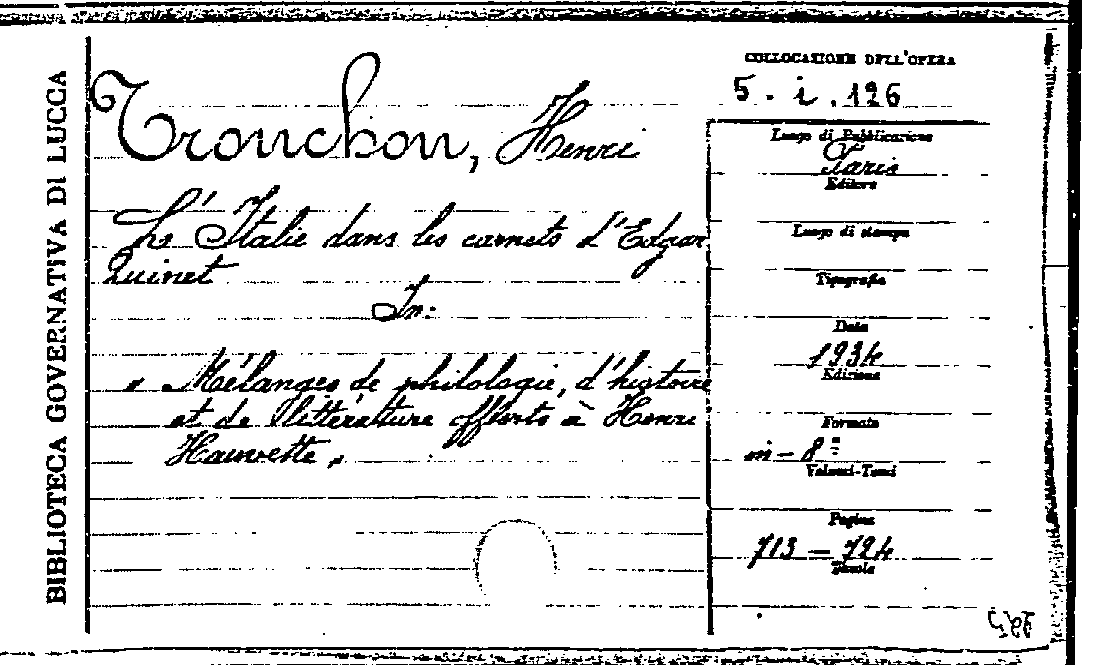 BIBLIOTECA GOVERNATIVA DI LUCCA
Tronchon, Henri
L'Italie dans les carnets d'Edgar
Quinet
In:
" Mélanges de philologie, d'histoire
et de littérature offerts à Henri
Hauvette "
COLLOCAZIONE DELL'OPERA
5. i. 126
Luogo di Pubblicazione
Paris
Editore
Luogo di stampa
Tipografia
Data
1934
Edizione
Formato
in-8°
Volumi-Tomi
Pagine
713 - 724
Tavole